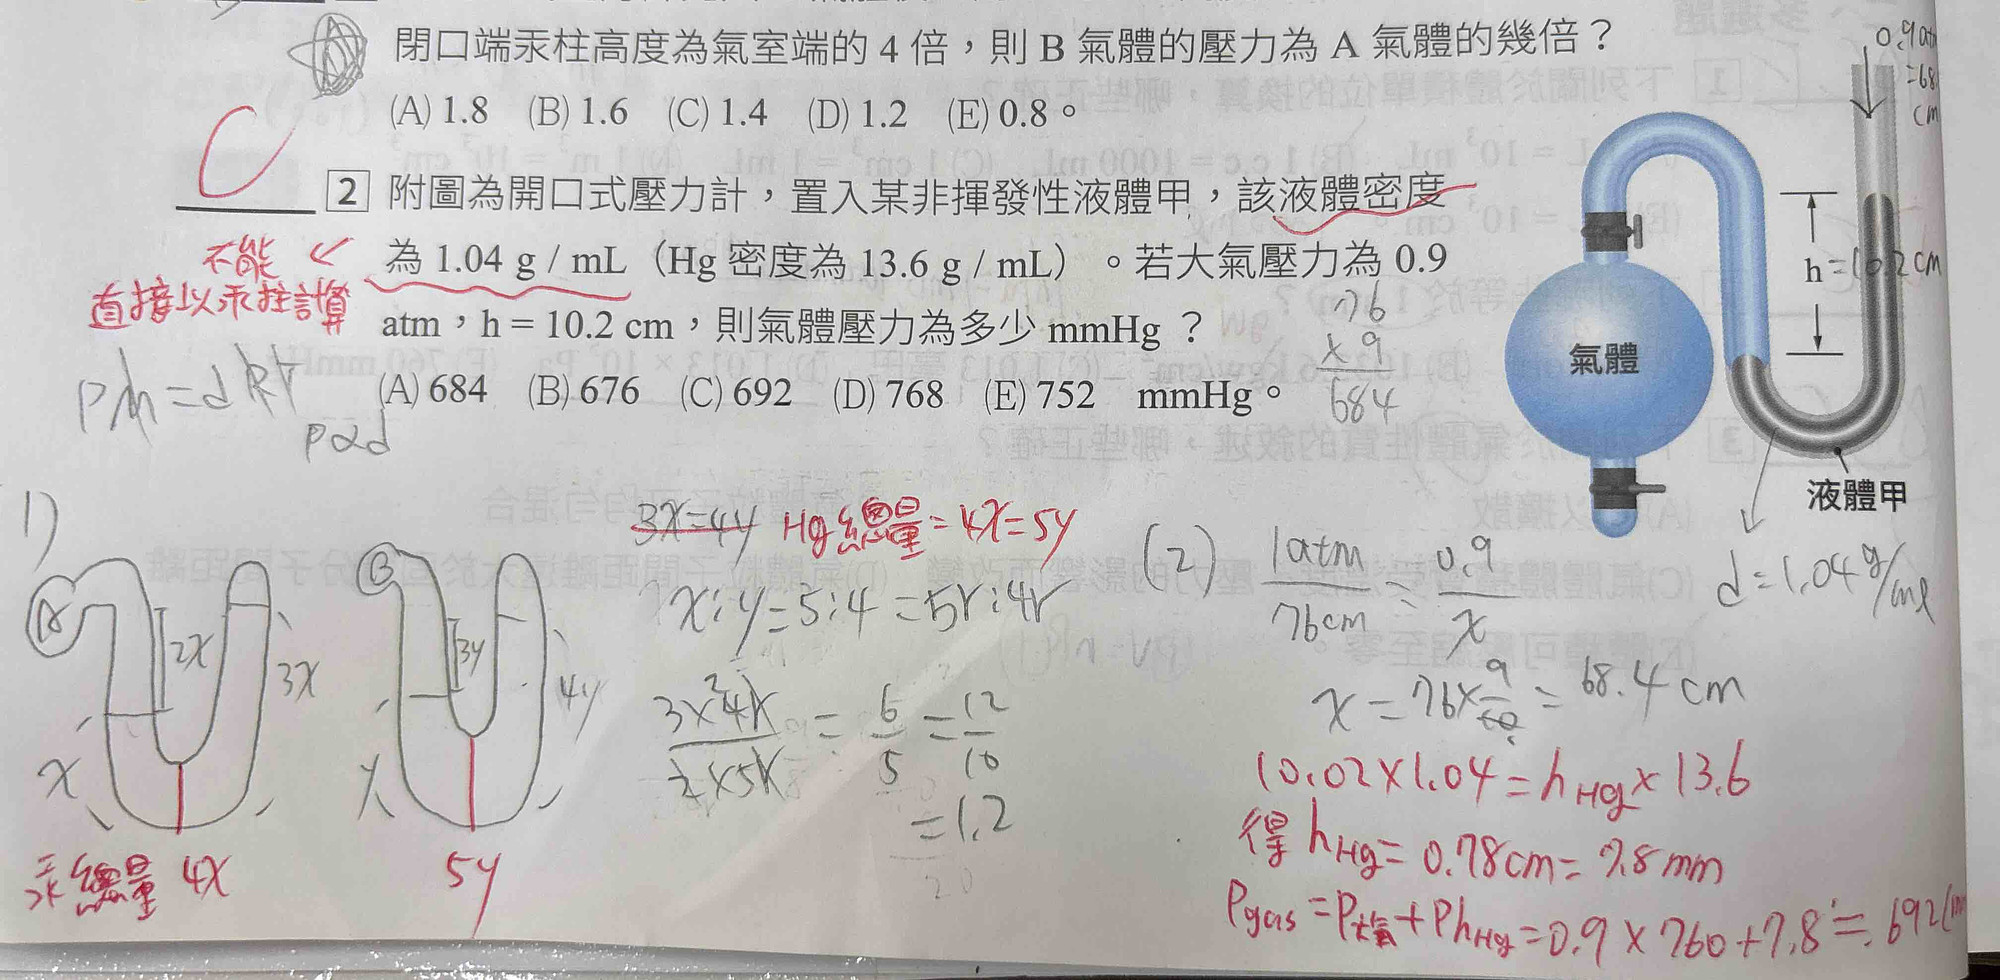 閉口端汞柱高度為氣室端的 4 倍，則 B 氣體的壓力為 A 氣體的幾倍？
(A) 1.8 (B) 1.6 (C) 1.4 (D) 1.2 (E) 0.8。
C
2 附圖為開口式壓力計，置入某非揮發性液體甲，該液體密度
為 1.04 g / mL（Hg 密度為 13.6 g / mL）。若大氣壓力為 0.9
atm，h = 10.2 cm，則氣體壓力為多少 mmHg ？
(A) 684 (B) 676 (C) 692 (D) 768 (E) 752 mmHg。
不能
直接以汞柱計算
P∝d
76
×9
684
0.9
cm
h=10.2cm
氣體
液體甲
d=1.04g/ml
1)
A
2x
3x
x
汞總量 4x
B
3y
4y
y
5y
3x=4y Hg總量=4x=5y
x:y=5:4=5r:4r
= 6/5 = 12/10
=1.2
20
(2) 1atm/76cm = 0.9/x
x=76×9/10=68.4cm
10.02×1.04=hHg×13.6
得 hHg=0.78cm=7.8mm
Pgas=P大氣+PhHg=0.9×760+7.8≒692